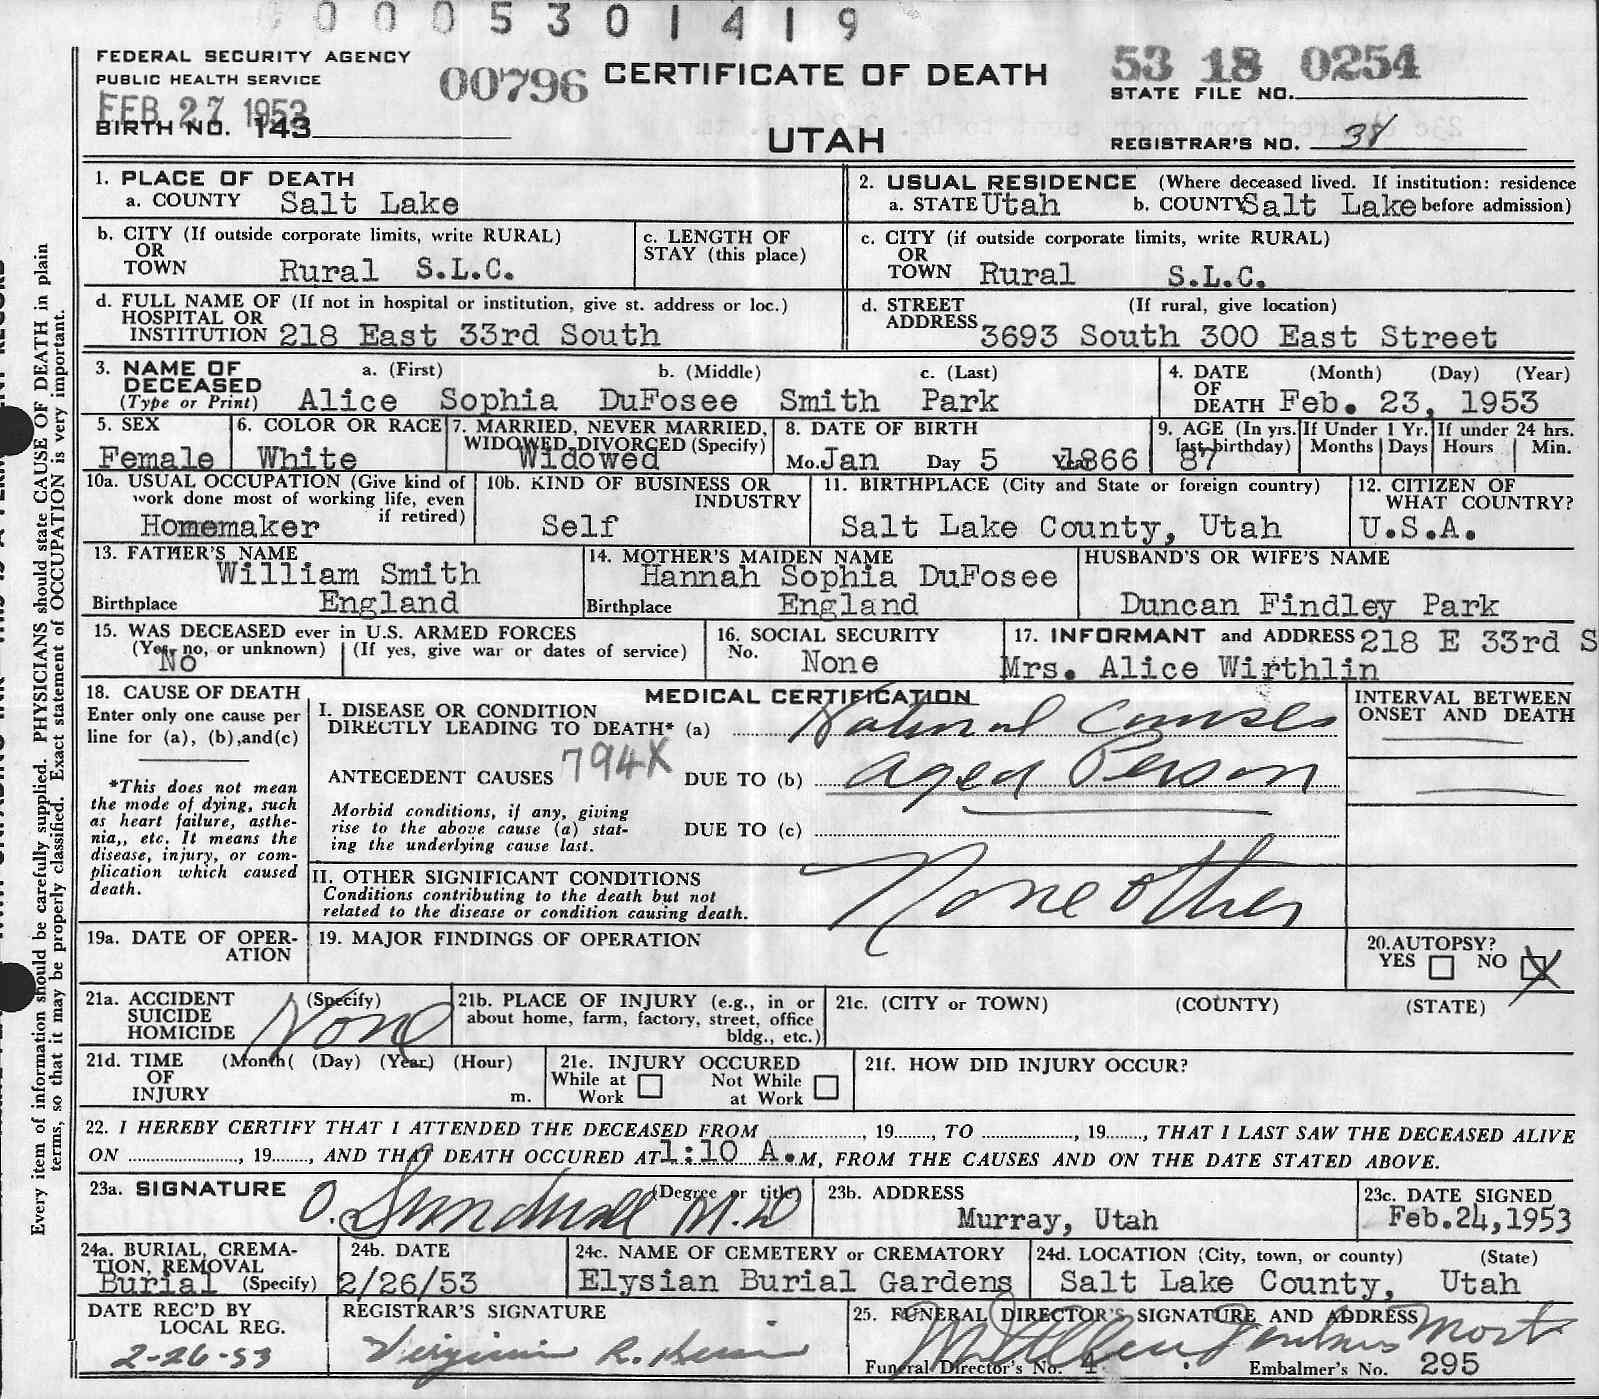 0005301419
FEDERAL SECURITY AGENCY
PUBLIC HEALTH SERVICE
00796 CERTIFICATE OF DEATH
53 18 0254
STATE FILE NO.
FEB 27 1953
BIRTH NO. 143
UTAH
REGISTRAR'S NO. 38
1. PLACE OF DEATH
a. COUNTY Salt Lake
2. USUAL RESIDENCE (Where deceased lived. If institution: residence
a. STATE Utah b. COUNTY Salt Lake before admission)
b. CITY (If outside corporate limits, write RURAL)
OR
TOWN Rural S.L.C.
c. LENGTH OF
STAY (this place)
c. CITY (if outside corporate limits, write RURAL)
OR
TOWN Rural S.L.C.
d. FULL NAME OF (If not in hospital or institution, give st. address or loc.)
HOSPITAL OR
INSTITUTION 218 East 33rd South
d. STREET (If rural, give location)
ADDRESS 3693 South 300 East Street
3. NAME OF
DECEASED
(Type or Print)
a. (First) b. (Middle) c. (Last)
Alice Sophia DuFosee Smith Park
4. DATE (Month) (Day) (Year)
OF
DEATH Feb. 23, 1953
5. SEX
Female
6. COLOR OR RACE
White
7. MARRIED, NEVER MARRIED,
WIDOWED, DIVORCED (Specify)
Widowed
8. DATE OF BIRTH
Mo. Jan Day 5 Year 1866
9. AGE (In yrs.
last birthday)
87
If Under 1 Yr.
Months Days
If under 24 hrs.
Hours Min.
10a. USUAL OCCUPATION (Give kind of
work done most of working life, even
if retired)
Homemaker
10b. KIND OF BUSINESS OR
INDUSTRY
Self
11. BIRTHPLACE (City and State or foreign country)
Salt Lake County, Utah
12. CITIZEN OF
WHAT COUNTRY?
U.S.A.
13. FATHER'S NAME
William Smith
Birthplace England
14. MOTHER'S MAIDEN NAME
Hannah Sophia DuFosee
Birthplace England
HUSBAND'S OR WIFE'S NAME
Duncan Findley Park
15. WAS DECEASED ever in U.S. ARMED FORCES
(Yes, no, or unknown) (If yes, give war or dates of service)
No
16. SOCIAL SECURITY
No. None
17. INFORMANT and ADDRESS 218 E 33rd S
Mrs. Alice Wirthlin
18. CAUSE OF DEATH
Enter only one cause per
line for (a), (b),and(c)
*This does not mean
the mode of dying, such
as heart failure, asthe-
nia,, etc. It means the
disease, injury, or com-
plication which caused
death.
MEDICAL CERTIFICATION
I. DISEASE OR CONDITION
DIRECTLY LEADING TO DEATH* (a) Natural Causes
794X
ANTECEDENT CAUSES DUE TO (b) aged Person
Morbid conditions, if any, giving
rise to the above cause (a) stat-
ing the underlying cause last.
DUE TO (c)
II. OTHER SIGNIFICANT CONDITIONS
Conditions contributing to the death but not
related to the disease or condition causing death.
None other
INTERVAL BETWEEN
ONSET AND DEATH
19a. DATE OF OPER-
ATION
19. MAJOR FINDINGS OF OPERATION
20. AUTOPSY?
YES NO X
21a. ACCIDENT (Specify)
SUICIDE
HOMICIDE
None
21b. PLACE OF INJURY (e.g., in or
about home, farm, factory, street, office
bldg., etc.)
21c. (CITY or TOWN) (COUNTY) (STATE)
21d. TIME (Month( (Day) (Year) (Hour)
OF
INJURY m.
21e. INJURY OCCURED
While at Work Not While at Work
21f. HOW DID INJURY OCCUR?
22. I HEREBY CERTIFY THAT I ATTENDED THE DECEASED FROM ............, 19......, TO ............, 19......, THAT I LAST SAW THE DECEASED ALIVE
ON ............, 19......, AND THAT DEATH OCCURED AT 1:10 A.M, FROM THE CAUSES AND ON THE DATE STATED ABOVE.
23a. SIGNATURE (Degree or title)
O. Sundwall M.D
23b. ADDRESS
Murray, Utah
23c. DATE SIGNED
Feb.24,1953
24a. BURIAL, CREMA-
TION, REMOVAL
Burial (Specify)
24b. DATE
2/26/53
24c. NAME OF CEMETERY or CREMATORY
Elysian Burial Gardens
24d. LOCATION (City, town, or county) (State)
Salt Lake County, Utah
DATE REC'D BY
LOCAL REG.
2-26-53
REGISTRAR'S SIGNATURE
Virginia R.
25. FUNERAL DIRECTOR'S SIGNATURE AND ADDRESS
Mort
Funeral Director's No. 4 Embalmer's No. 295
Every item of information should be carefully supplied. PHYSICIANS should state CAUSE OF DEATH in plain
terms, so that it may be properly classified. Exact statement of OCCUPATION is very important.